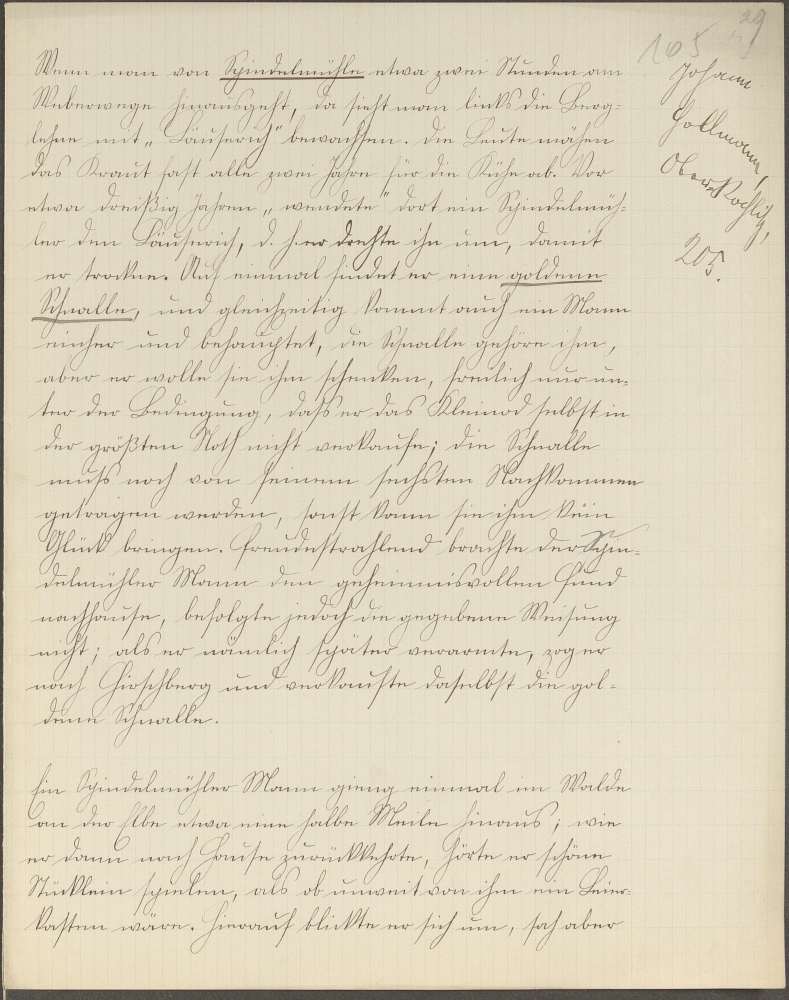 29
105
Johann
Hollmann,
Ober-Rochlitz,
205.
Wenn man von Spindelmühle etwa zwei Stunden am
Weberwege hinausgeht, da sieht man links die Berg-
lehne mit „Läuserich" bewachsen. Die Leute mähen
das Kraut fast alle zwei Jahre für die Kühe ab. Vor
etwa dreißig Jahren „wendete" dort ein Spindelmüh-
ler den Läuserich, d. h. er drehte ihn um, damit
er trockne. Auf einmal findet er eine goldene
Schnalle, und gleichzeitig kommt auch ein Mann
einher und behauptet, die Schnalle gehöre ihm,
aber er wolle sie ihm schenken, freilich nur un-
ter der Bedingung, dass er das Kleinod selbst in
der größten Noth nicht verkaufe; die Schnalle
muss noch von seinem sechsten Nachkommen
getragen werden, sonst kann sie ihm kein
Glück bringen. Freudestrahlend brachte der Spin-
delmühler Mann den geheimnisvollen Fund
nachhause, befolgte jedoch die gegebene Weisung
nicht; als er nämlich später verarmte, zog er
nach Hirschberg und verkaufte daselbst die gol-
dene Schnalle.
Ein Spindelmühler Mann gieng einmal im Walde
an der Elbe etwa eine halbe Meile hinaus; wie
er dann nach Hause zurückkehrte, hörte er schöne
Stücklein spielen, als ob unweit von ihm ein Leier-
kasten wäre. Hierauf blickte er sich um, sah aber